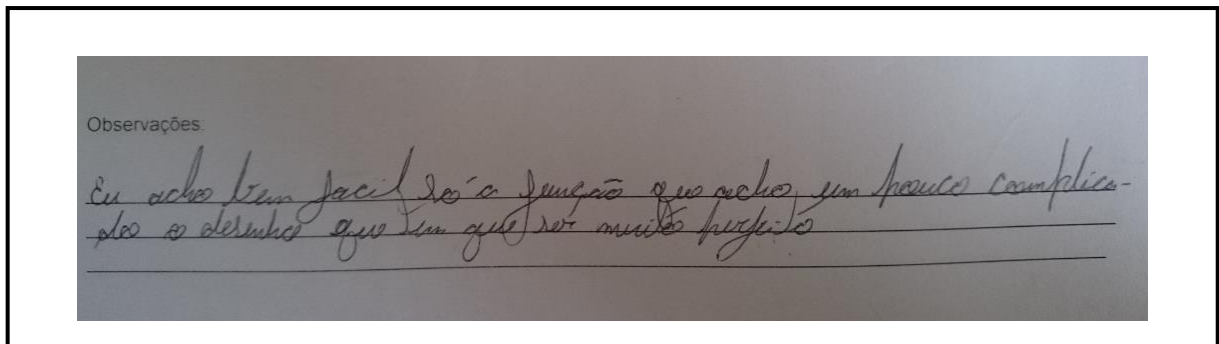 Observações:
Eu acho bem facil só a função que acho um pouco coomplica-
do o desenho que tem que ser muito perfeito